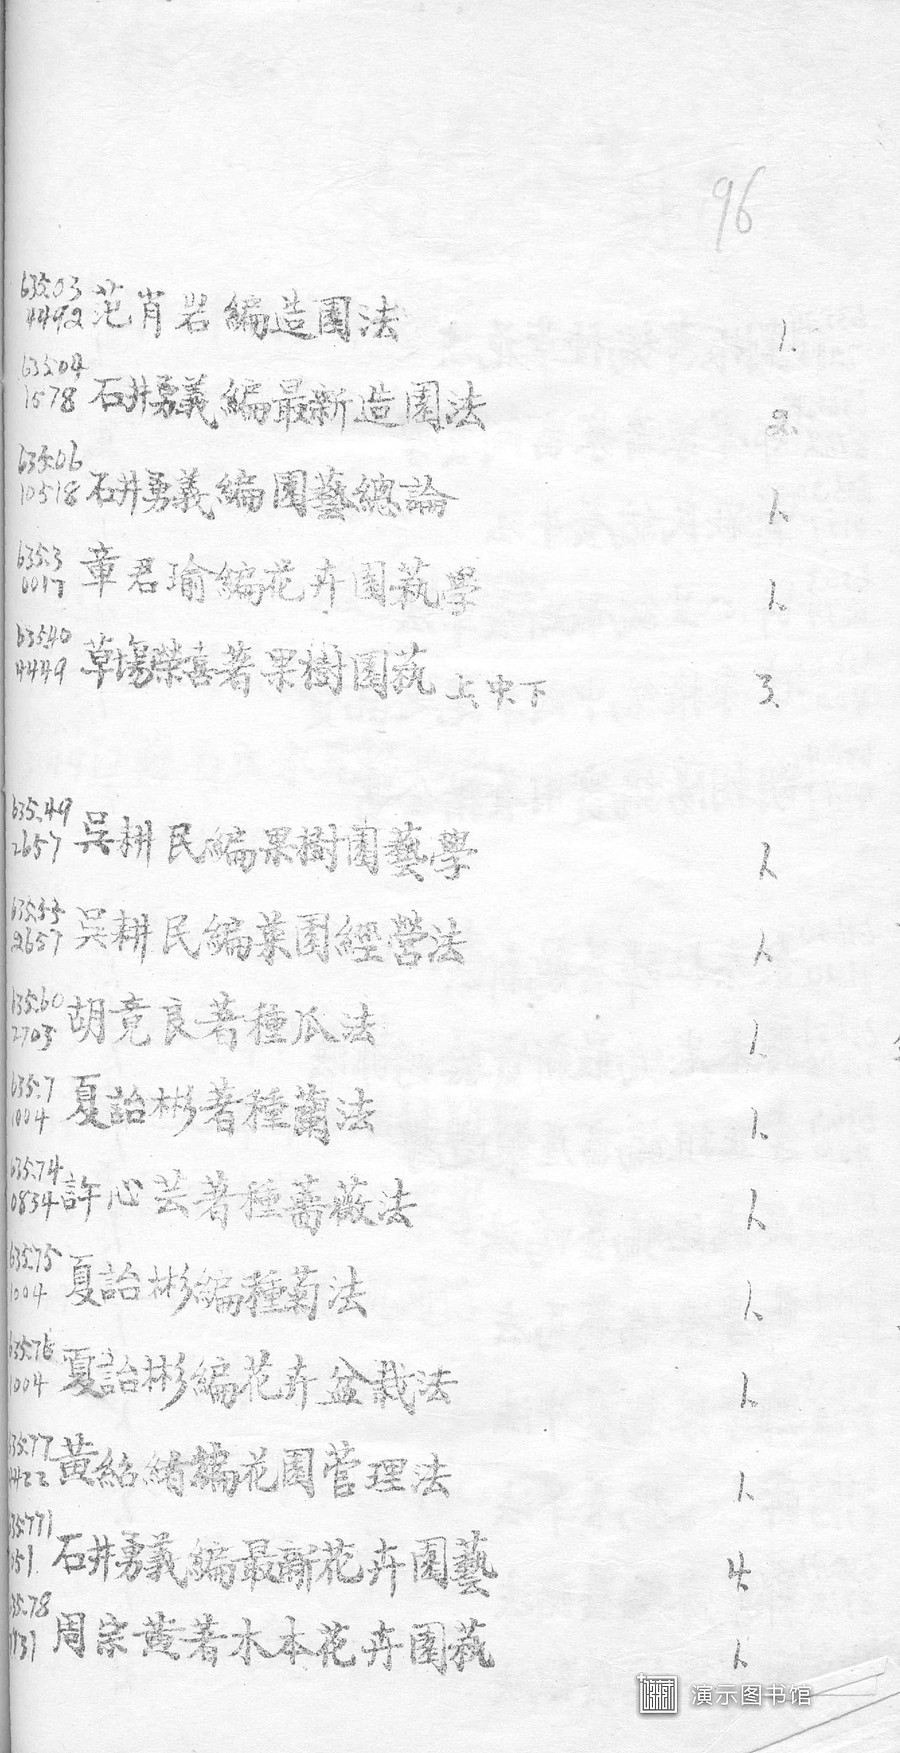 96
635.03
4492 范肖岩編造園法 1.
635.04
1578 石井勇義編最新造園法 2.
635.06
10518 石井勇義編園藝總論 1.
635.3
0017 章君瑜編花卉園蓺學 1.
635.40
4449 草塲榮喜著果樹園蓺 上、中、下 3.
635.49
2657 吳耕民編果樹園藝學 1.
2657 吳耕民編菜園經營法 1.
635.60
2703 胡竟良著種瓜法 1.
635.7
1004 夏詒彬著種蘭法 1.
635.74
0834 許心芸著種薔薇法 1.
635.75
1004 夏詒彬編種菊法 1.
635.76
1004 夏詒彬編花卉盆栽法 1.
35.77
4422 黃紹緒編花園管理法 1.
35.771
051 石井勇義編最新花卉園藝 4.
35.78
周宗黄著木本花卉園蓺 1.
演示图书馆